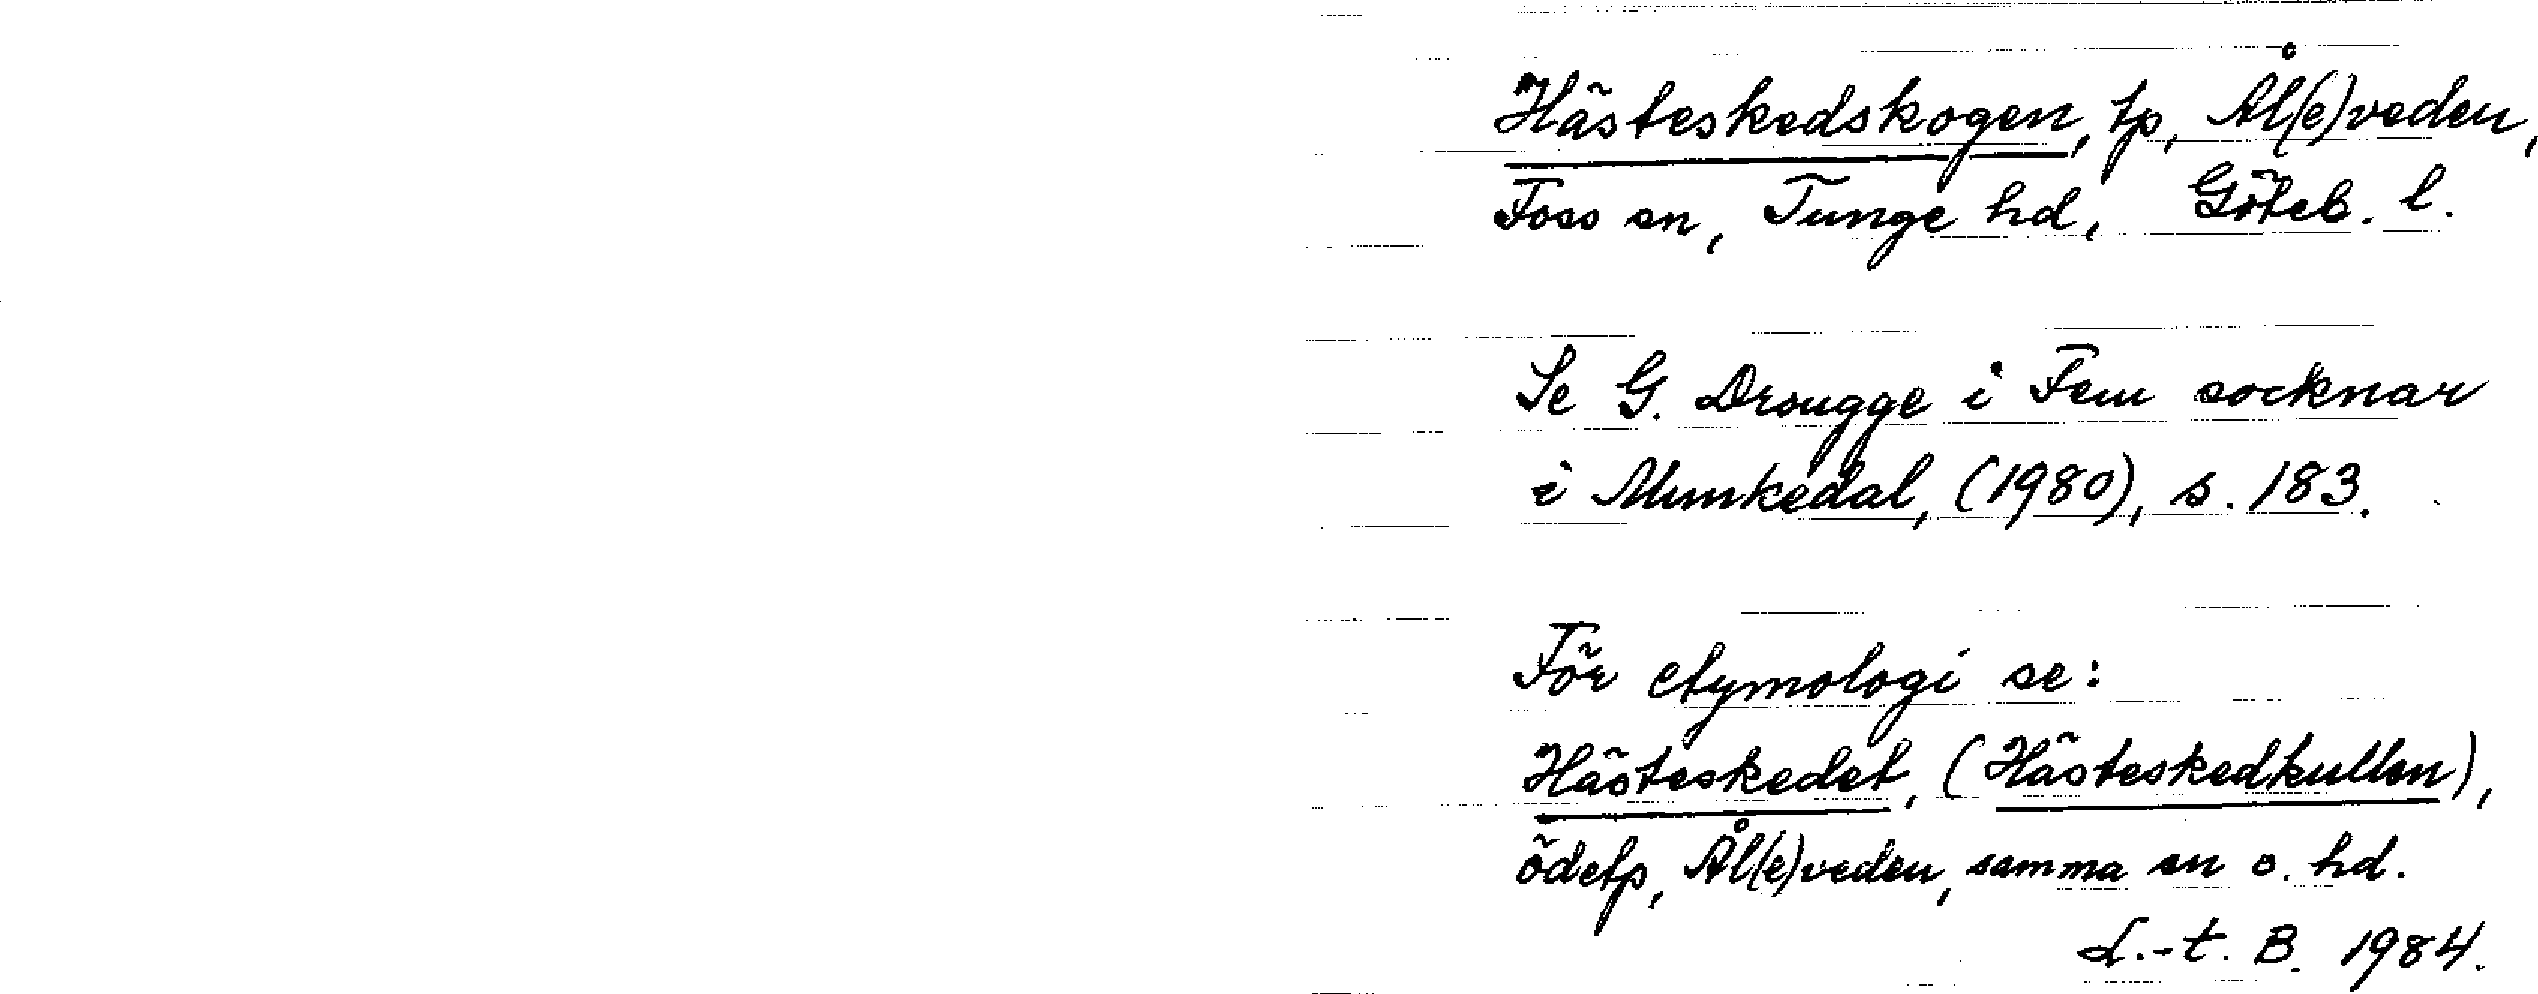 Hästeskedskogen, tp, Ål(e)veden,
Foss sn, Tunge hd, Göteb. l.
Se G. Drougge i Fem socknar
i Munkedal, (1980), s. 183.
För etymologi se:
Hästeskedet, (Hästeskedkullen),
ödetp, Ål(e)veden, samma sn o. hd.
L.-t. B. 1984.